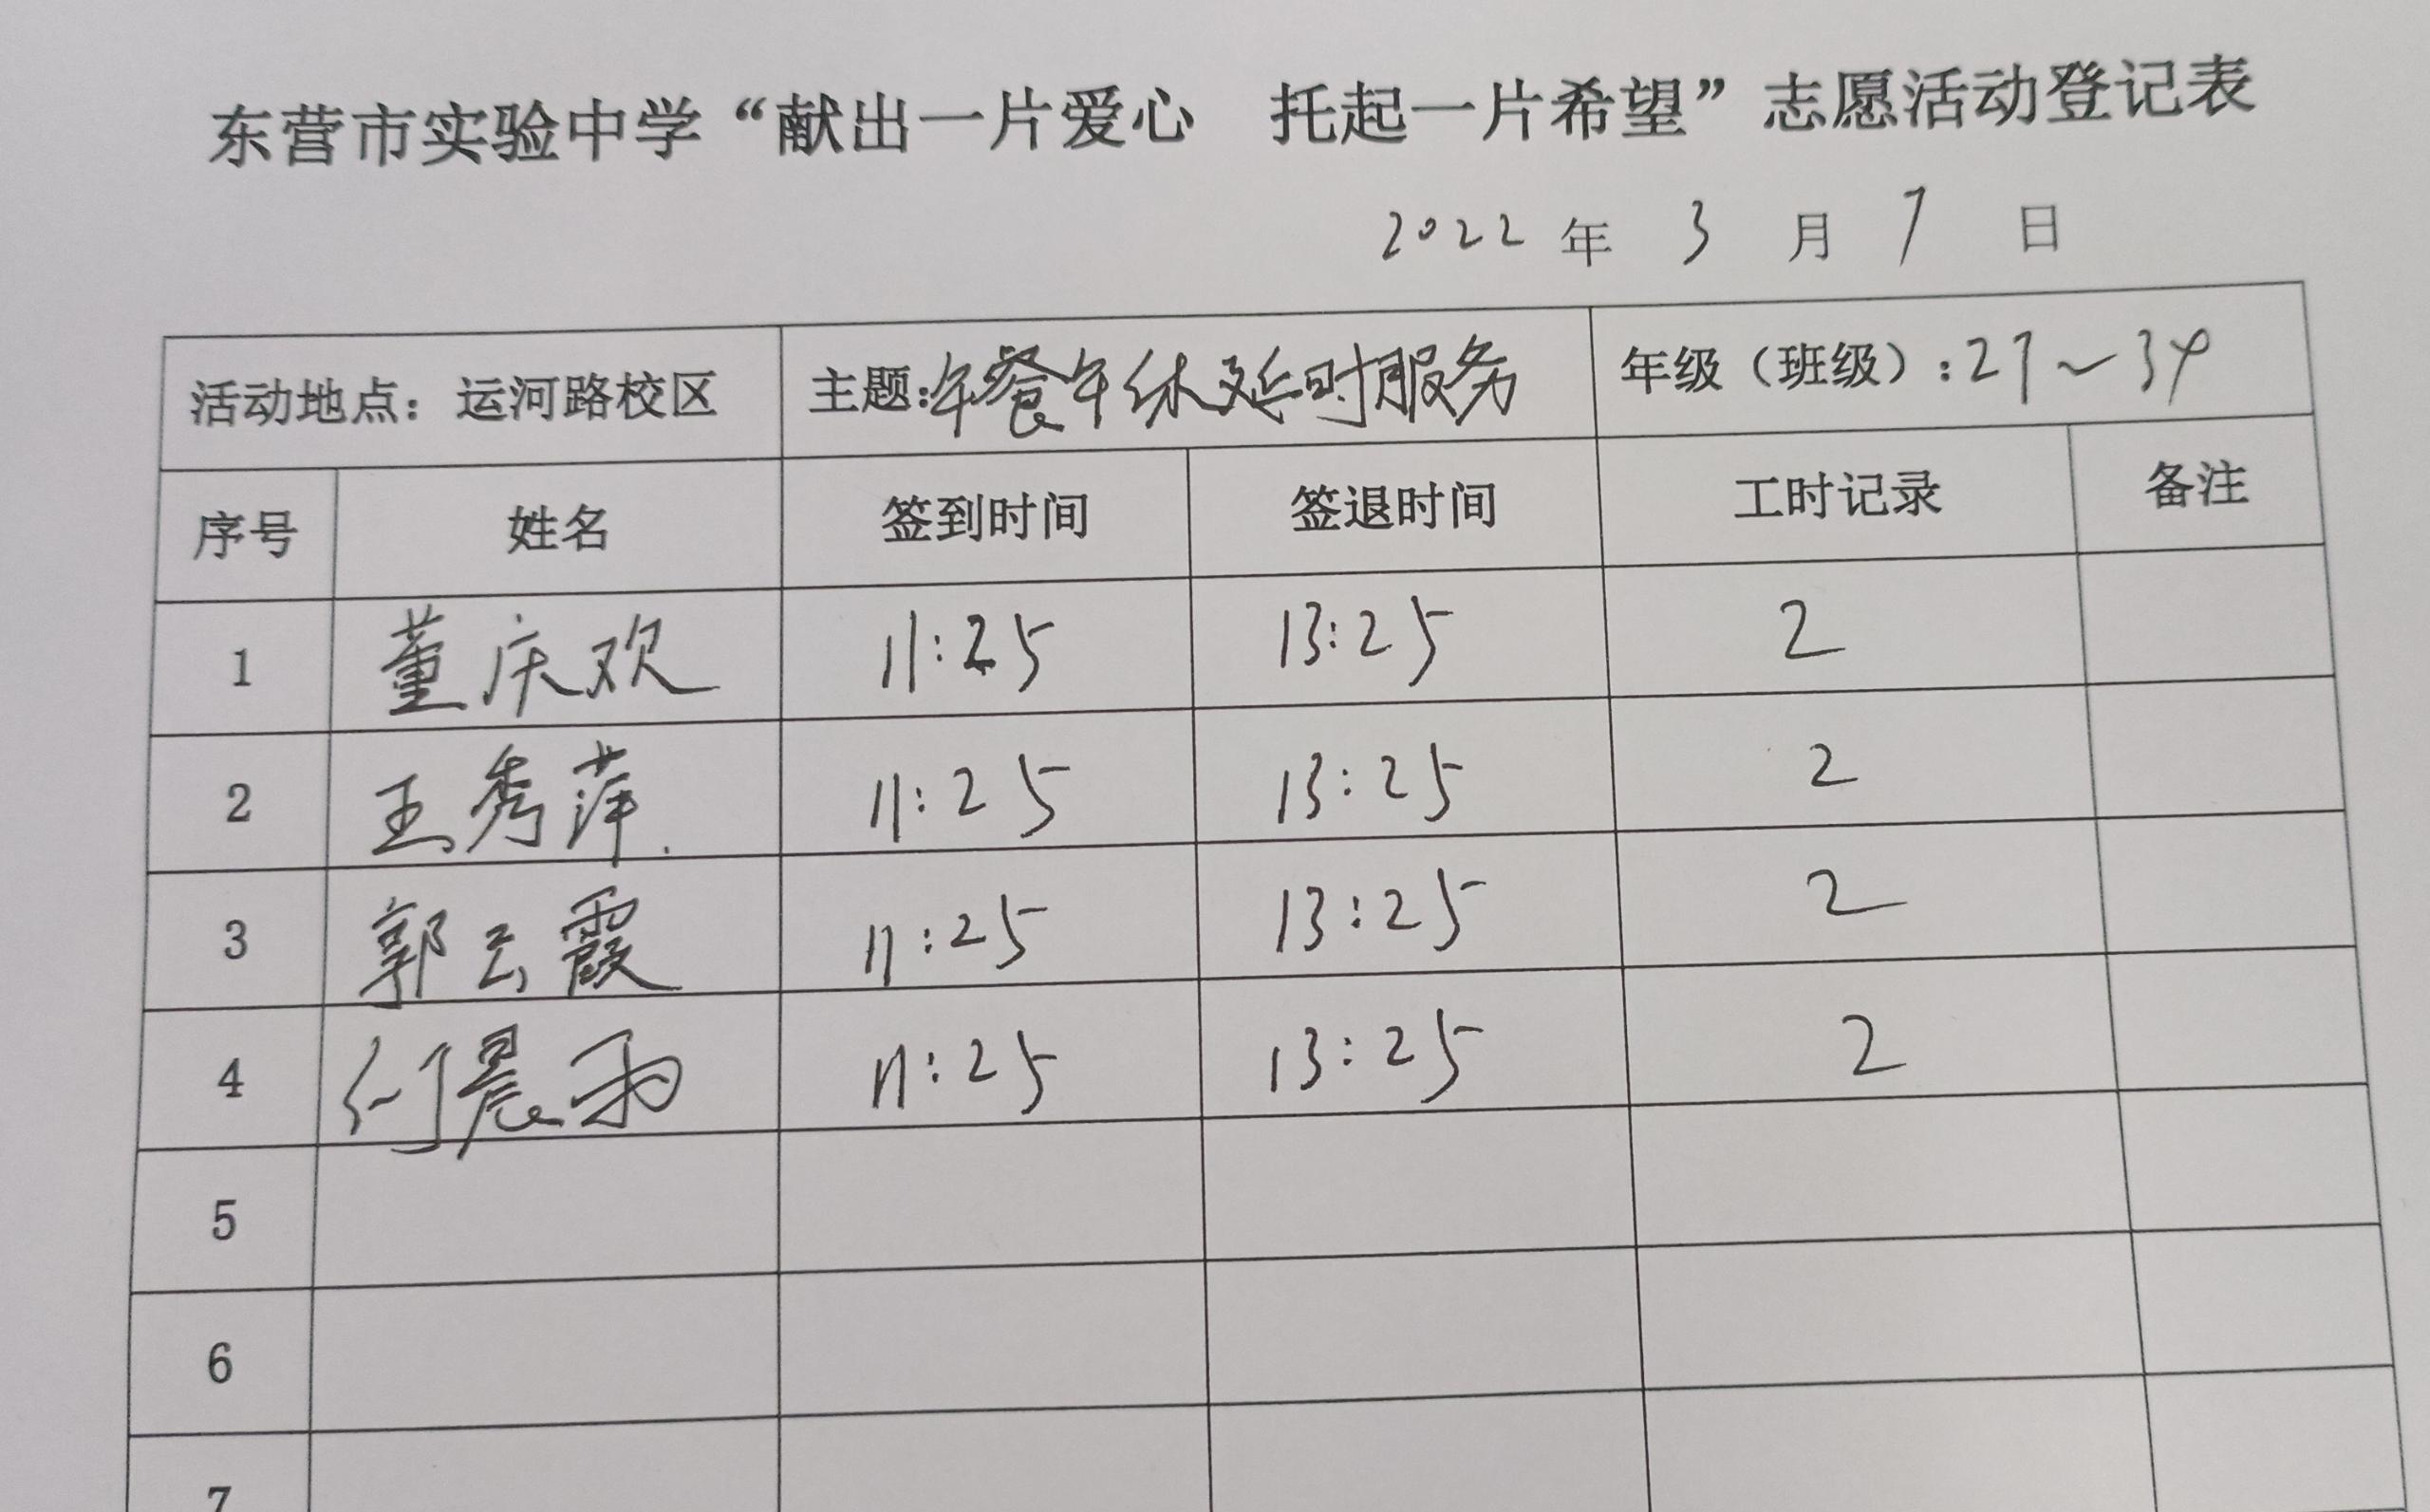 东营市实验中学“献出一片爱心 托起一片希望”志愿活动登记表
2022 年 3 月 7 日
活动地点：运河路校区 主题：午餐午休延时服务 年级（班级）：27～34
序号 姓名 签到时间 签退时间 工时记录 备注
1 董庆欢 11:25 13:25 2
2 王秀萍 11:25 13:25 2
3 郭云霞 11:25 13:25 2
4 晨雨 11:25 13:25 2
5
6
7